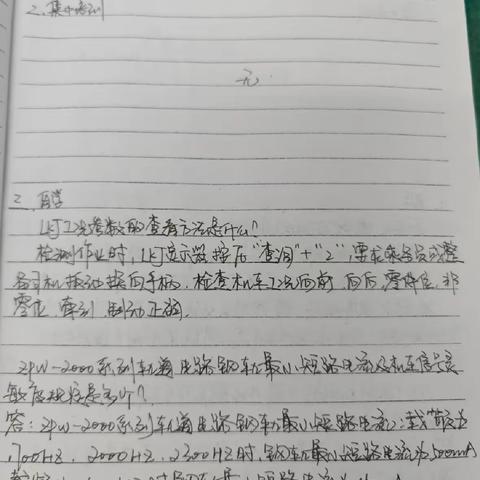 2. 集中培训
无
2. 自学
LKJ工况参数的查看方法是什么?
检测作业时, LKJ显示器按压"查询"+"2", 要求乘务员或整
备司机扳动换向手柄, 检查机车工况向前 向后, 零位, 非
零位, 牵引 制动正确.
ZPW-2000系列轨道电路钢轨最小短路电流及机车信号灵
敏度规定是多少?
答: ZPW-2000系列轨道电路钢轨最小短路电流: 载频为
1700HZ, 2000HZ, 2300HZ时, 钢轨最小短路电流为500mA